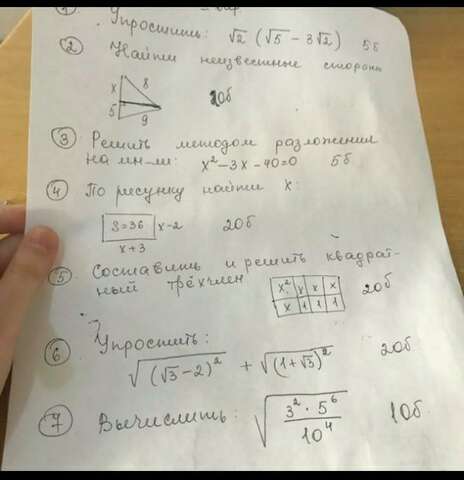 Упростить: √2 (√5 − 3√2) 5б
② Найти неизвестные стороны
x 8
5 9
20б
③ Решить методом разложения
на мн-ли: x² − 3x − 40 = 0 5б
④ По рисунку найти x:
S = 36 x − 2 20б
x + 3
⑤ Составить и решить квадрат-
ный трёхчлен
x² x x x
x 1 1 1
20б
⑥ Упростить:
√(√3 − 2)² + √(1 + √3)² 20б
⑦ Вычислить: √(3² · 5⁶ / 10⁴) 10б.